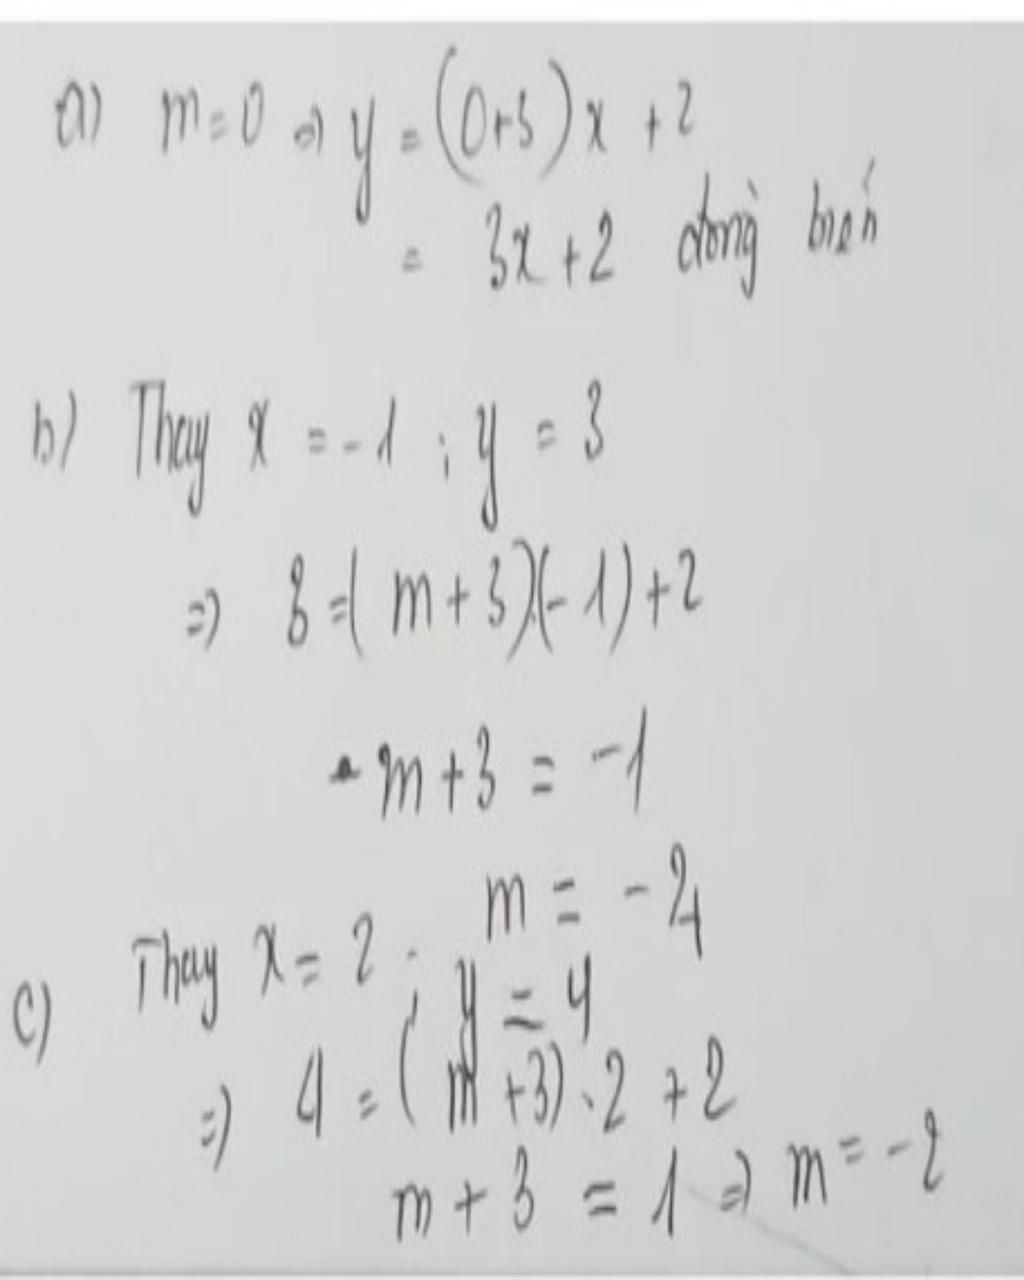 a) m = 0 => y = (0+3)x + 2
= 3x + 2 đồng biến
b) Thay x = -1 ; y = 3
=> 3 = (m + 3)(-1) + 2
m + 3 = -1
m = -4
c) Thay x = 2 ; y = 4
=> 4 = (m + 3).2 + 2
m + 3 = 1 => m = -2